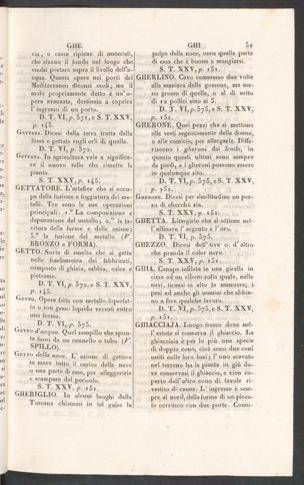 GHE
GHI
51
sia, o casse ripiene di materiali,
che alzano il fondo nel luogo che
vuolsi portare sopra il livello dell'a-
cqua. Queste opere nei porti del
Mediterraneo diconsi moli; ma il
molo propriamente detto è un'o-
pera avanzata, destinata a coprire
l'ingresso di un porto.
D. T. VI, p. 571, e S. T. XXV,
p. 145.
GETTATA. Dicesi della terra tratta dalla
fossa e gettata sugli orli di quella.
D. T. VI, p. 571.
GETTATA. In agricoltura vale a significa-
re il nuovo tallo che rimette la
pianta.
S. T. XXV, p. 145.
GETTATORE. L'artefice che si occu-
pa della fusione e foggiatura dei me-
talli. Tre sono le sue operazioni
principali: 1.ª La composizione e
depurazione del metallo; 2.ª la fa-
citura delle forme e delle anime;
3.ª la fusione del metallo (V.
BRONZO e FORMA).
GETTO. Sorta di smalto che si getta
nelle fondamenta dei fabbricati,
composto di ghiaia, sabbia, calce e
pietrame.
D. T. VI, p. 572, e S. T. XXV,
p. 145.
GETTO. Opera fatta con metallo liquefat-
to o con gesso liquido versati entro
una forma.
D. T. VI, p. 575.
GETTO d'acqua. Quel zampillo che spun-
ta fuori da un cannello o tubo (V.
SPILLO).
GETTO della nave. L'azione di gettare
in mare tutto il carico della nave
o una parte di esso, per alleggerirle
e scampare dal pericolo.
S. T. XXV, p. 151.
GHERIGLIO. In alcuni luoghi della
Toscana chiamasi in tal guisa la
polpa della noce, ossia quella parte
di essa che è buona a mangiarsi.
S. T. XXV, p. 151.
GHERLINO. Cavo commesso due volte
alla maniera delle gomone, ma me-
no grosso di quelle, e al di sotto
di 12 pollici sino ai 5.
D. T. VI, p. 575, e S. T. XXV,
p. 151.
GHERONE. Quei pezzi che si mettono
alle vesti segnatamente delle donne,
o alle camicie, per allargarle. Diffe-
riscono i gheroni dai lembi, in
quanto questi ultimi sono sempre
da piedi, e i gheroni possono essere
in qualunque sito.
D. T. VI, p. 575, e S. T. XXV,
p. 151.
GHERONE. Dicesi per similitudine un pez-
zo di checchè sia.
S. T. XXV, p. 151.
GHETTA. Litargirio che si ottiene nel-
l'affinare l'argento e l'oro.
D. T. VI, p. 575.
GHEZZO. Dicesi dell'uve o d'altro
che prenda il color nero.
S. T. XXV, p. 151.
GHIA. Canapo infilato in una girella in
cima ad un albero colla quale, nelle
navi, tiransi in alto le manovre, i
pesi ed anche gli uomini che abbia-
no a fare qualche lavoro.
D. T. VI, p. 575, e S. T. XXV,
p. 151.
GHIACCIAJA. Luogo fresco dove nel-
l'estate si conserva il ghiaccio. La
ghiacciaia è per lo più una specie
di doppio cono, cioè sono due coni
uniti colle loro basi; l'uno scavato
nel terreno ha la punta in giù do-
ve conservasi il ghiaccio, e vien co-
perto dall'altro cono di tavole ri-
vestito di canne. L'ingresso è sem-
pre al nord, della forma di un picco-
lo corritoio con due porte. Costru-